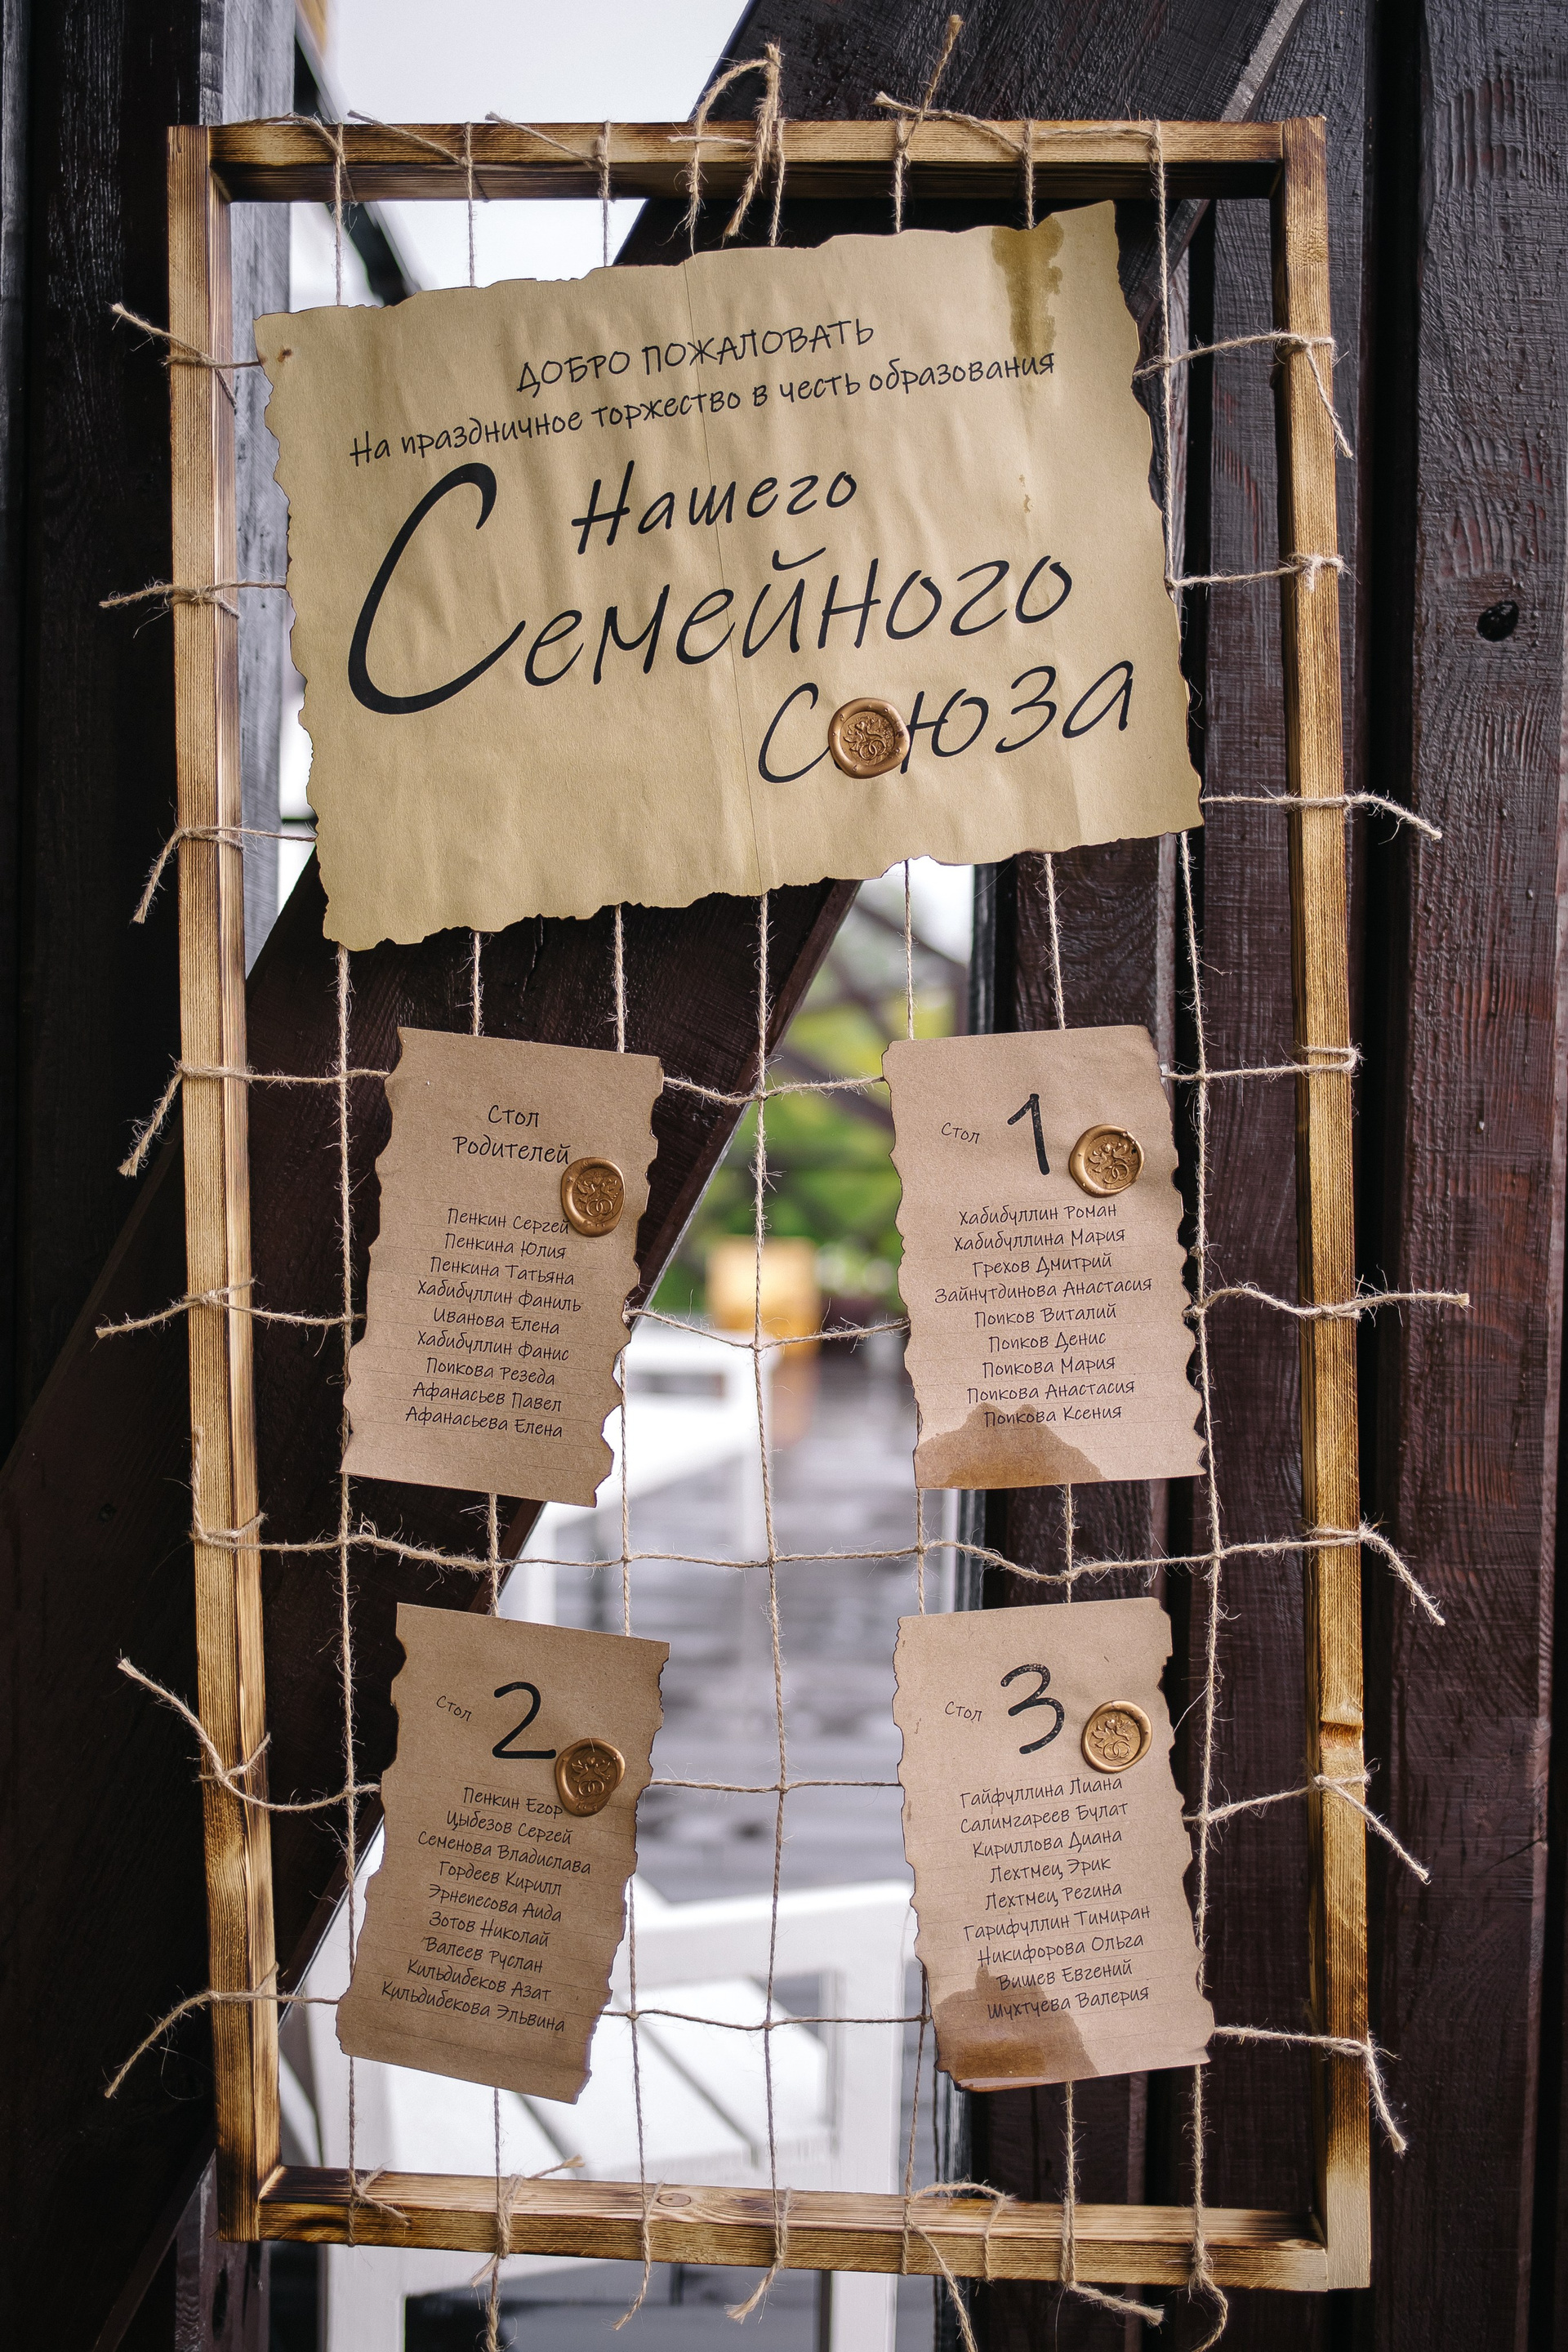 ДОБРО ПОЖАЛОВАТЬ
На праздничное торжество в честь образования
Нашего
Семейного
Союза
Стол
Родителей
Пенкин Сергей
Пенкина Юлия
Пенкина Татьяна
Хабибуллин Фаниль
Иванова Елена
Хабибуллин Фанис
Попкова Резеда
Афанасьев Павел
Афанасьева Елена
Стол 1
Хабибуллин Роман
Хабибуллина Мария
Грехов Дмитрий
Зайнутдинова Анастасия
Попков Виталий
Попков Денис
Попкова Мария
Попкова Анастасия
Попкова Ксения
Стол 2
Пенкин Егор
Цыбезов Сергей
Семенова Владислава
Гордеев Кирилл
Эрнепесова Аида
Зотов Николай
Валеев Руслан
Кильдибеков Азат
Кильдибекова Эльвина
Стол 3
Гайфуллина Лиана
Салимгареев Булат
Кириллова Диана
Лехтмец Эрик
Лехтмец Регина
Гарифуллин Тимиран
Никифорова Ольга
Вишев Евгений
Шухтуева Валерия